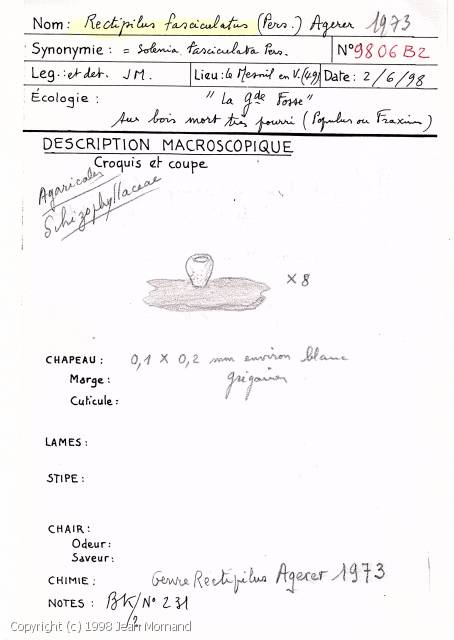 Nom: Rectipilus fasciculatus (Pers.) Agerer 1973
Synonymie : = Solenia fasciculata Pers. N°9806B2
Leg.: et det. JM. Lieu: le Mesnil en V. (49) Date: 2/6/98
Écologie : "La Gde Fosse"
Sur bois mort très pourri (Populus ou Fraxinus)
DESCRIPTION MACROSCOPIQUE
Croquis et coupe
Agaricales
Schizophyllaceae
× 8
CHAPEAU : 0,1 × 0,2 mm environ blanc
Marge : grégaires
Cuticule :
LAMES :
STIPE :
CHAIR :
Odeur :
Saveur :
CHIMIE : Genre Rectipilus Agerer 1973
NOTES : BK/2 N° 231
Copyright (c) 1998 Jean Mornand